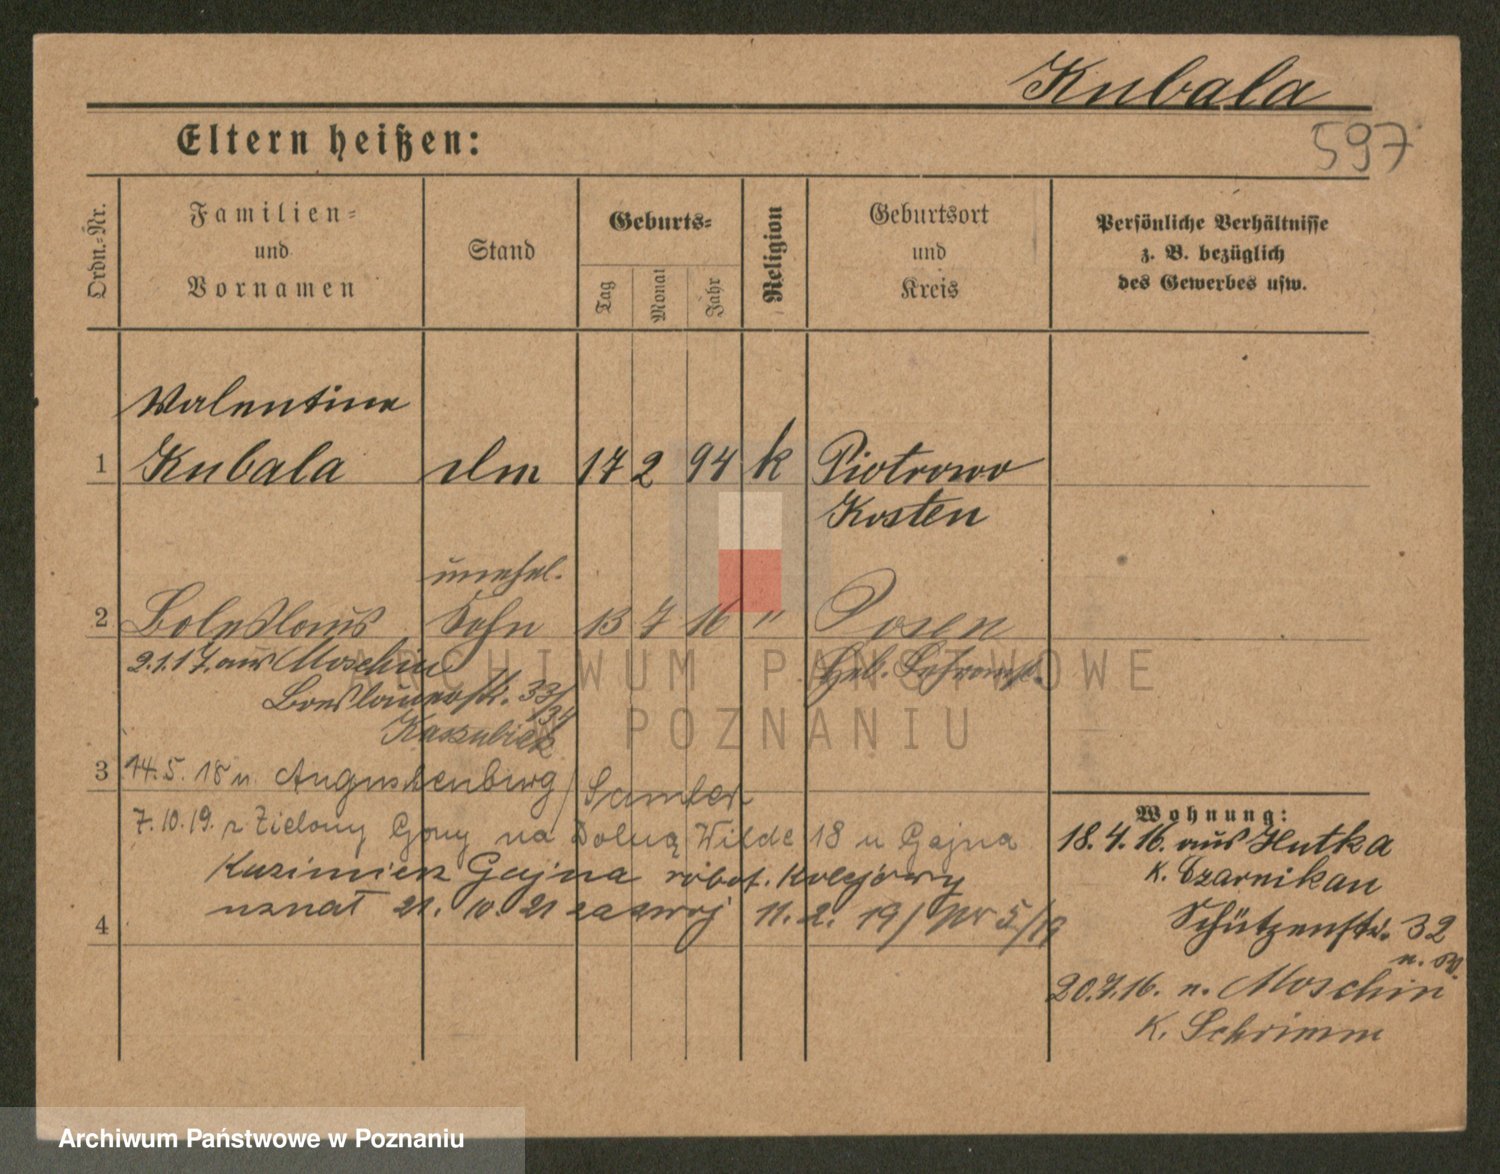 Kubala
597
Eltern heißen:
Ordn.-Nr.
Familien-
und
Vornamen
Stand
Geburts-
Tag
Monat
Jahr
Religion
Geburtsort
und
Kreis
Persönliche Verhältnisse
z. B. bezüglich
des Gewerbes usw.
Valentina
1 Kubala 17 2 94 k Piotrowo
Kosten
unehel.
2 Boleslaus Sohn 13 7 16 " Posen
2.1.17. aus Moschin
Breslauerstr. 33/34
Kaszubiak
3 14.5.18 n. Augustenburg / Samter
7.10.19. z Zielony Góry na Dolną Wildę 18 u Gajna
Kazimierz Gajna robot. kolejowy
4 uznał 21. 10. 21 za swoj 11. 2. 19 / Nr 5/19
Wohnung:
18.4.16. aus Hutka
K. Czarnikau
Schützenstr. 32
20.7.16. n. Moschin
K. Schrimm
ARCHIWUM PAŃSTWOWE
W POZNANIU
Archiwum Państwowe w Poznaniu